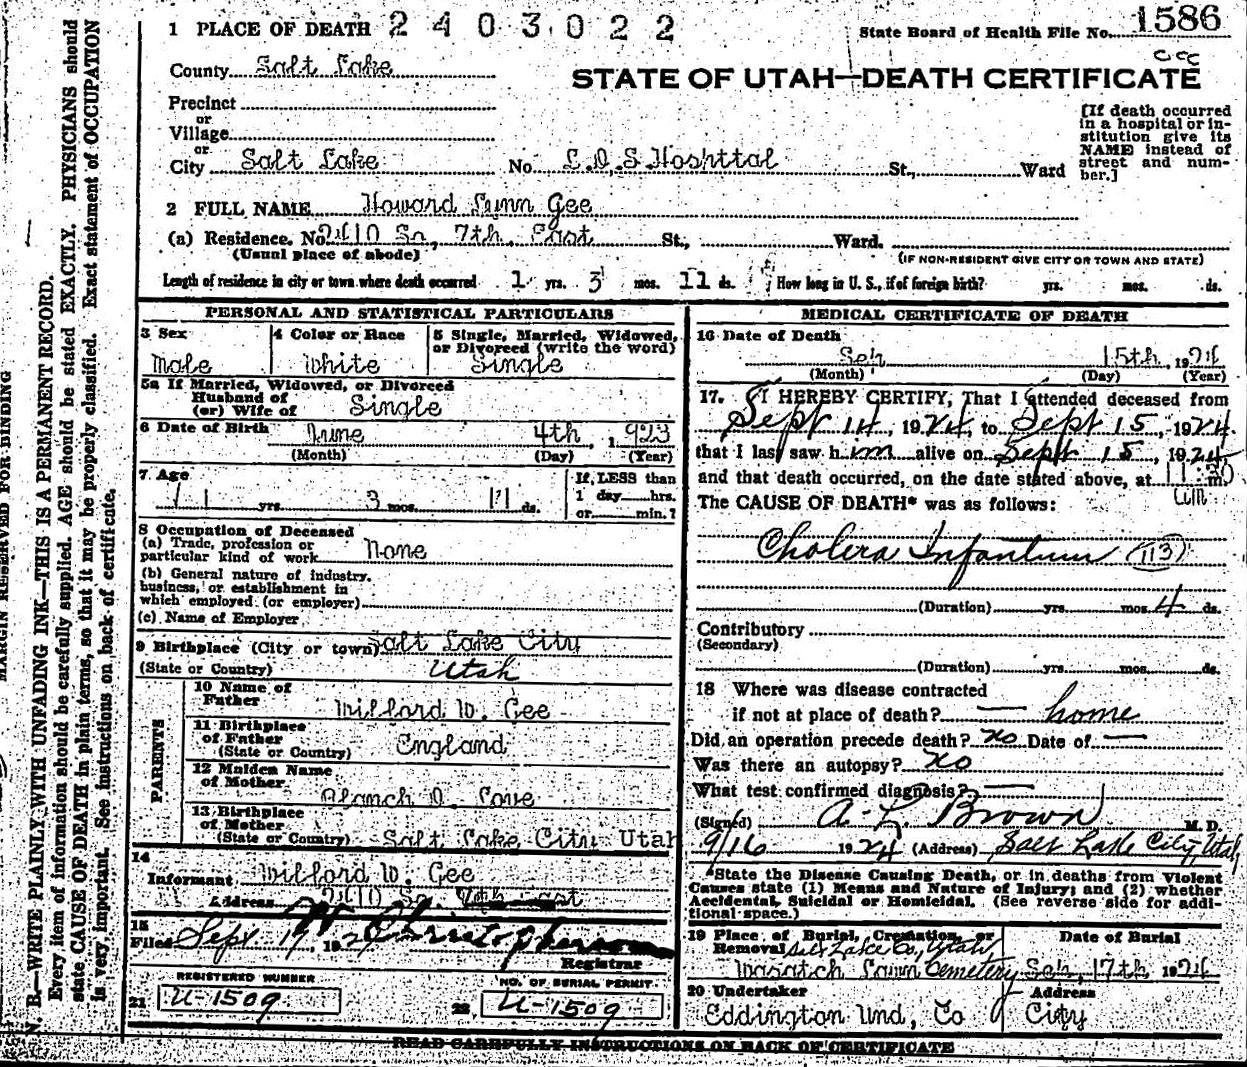 1 PLACE OF DEATH 2403022
State Board of Health File No. 1586
County Salt Lake
ccc
STATE OF UTAH—DEATH CERTIFICATE
Precinct
or
Village
or
City Salt Lake No. L.D.S Hoshttal St., Ward
[If death occurred
in a hospital or in-
stitution give its
NAME instead of
street and num-
ber.]
2 FULL NAME Howard Lynn Gee
(a) Residence. No. 2410 So, 7th, East St., Ward.
(Usual place of abode)
(IF NON-RESIDENT GIVE CITY OR TOWN AND STATE)
Length of residence in city or town where death occurred 1 yrs. 3 mos. 11 ds. How long in U. S., if of foreign birth? yrs. mos. ds.
PERSONAL AND STATISTICAL PARTICULARS
3 Sex
Male
4 Color or Race
White
5 Single, Married, Widowed,
or Divorced (write the word)
Single
5a If Married, Widowed, or Divorced
Husband of
(or) Wife of Single
6 Date of Birth June 4th, 1923
(Month) (Day) (Year)
7 Age
1 yrs. 3 mos. 11 ds.
If LESS than
1 day hrs.
or min.?
8 Occupation of Deceased
(a) Trade, profession or
particular kind of work None
(b) General nature of industry,
business, or establishment in
which employed (or employer)
(c) Name of Employer
9 Birthplace (City or town) Salt Lake City
(State or Country) Utah
PARENTS
10 Name of
Father Wilford W. Gee
11 Birthplace
of Father
(State or Country) England
12 Maiden Name
of Mother Blanch D. Cove
13 Birthplace
of Mother
(State or Country) Salt Lake City Utah
14
Informant Wilford W. Gee
Address 2410 So. 7th East
15
Filed Sept 17, 1924 Christopherson
Registrar
REGISTERED NUMBER
21 U-1509
NO. OF BURIAL PERMIT
22 U-1509
MEDICAL CERTIFICATE OF DEATH
16 Date of Death
Sep 15th, 1924
(Month) (Day) (Year)
17. I HEREBY CERTIFY, That I attended deceased from
Sept 14, 1924, to Sept 15, 1924.
that I last saw him alive on Sept 15, 1924
and that death occurred, on the date stated above, at 11:30 m
am
The CAUSE OF DEATH* was as follows:
Cholera Infantum (113)
(Duration) yrs. mos. 4 ds.
Contributory
(Secondary)
(Duration) yrs. mos. ds.
18 Where was disease contracted
if not at place of death? — home
Did an operation precede death? No Date of —
Was there an autopsy? No
What test confirmed diagnosis? —
(Signed) A. L. Brown M. D.
9/16 1924 (Address) Salt Lake City, Utah
*State the Disease Causing Death, or in deaths from Violent
Causes state (1) Means and Nature of Injury; and (2) whether
Accidental, Suicidal or Homicidal. (See reverse side for addi-
tional space.)
19 Place of Burial, Cremation, or
Removal Salt Lake Co, Utah
Wasatch Lawn Cemetery
Date of Burial
Sep, 17th 1924
20 Undertaker
Eddington Und, Co
Address
City
READ CAREFULLY INSTRUCTIONS ON BACK OF CERTIFICATE
MARGIN RESERVED FOR BINDING
N. B.—WRITE PLAINLY WITH UNFADING INK—THIS IS A PERMANENT RECORD.
Every item of information should be carefully supplied. AGE should be stated EXACTLY. PHYSICIANS should
state CAUSE OF DEATH in plain terms, so that it may be properly classified. Exact statement of OCCUPATION
is very important. See instructions on back of certificate.